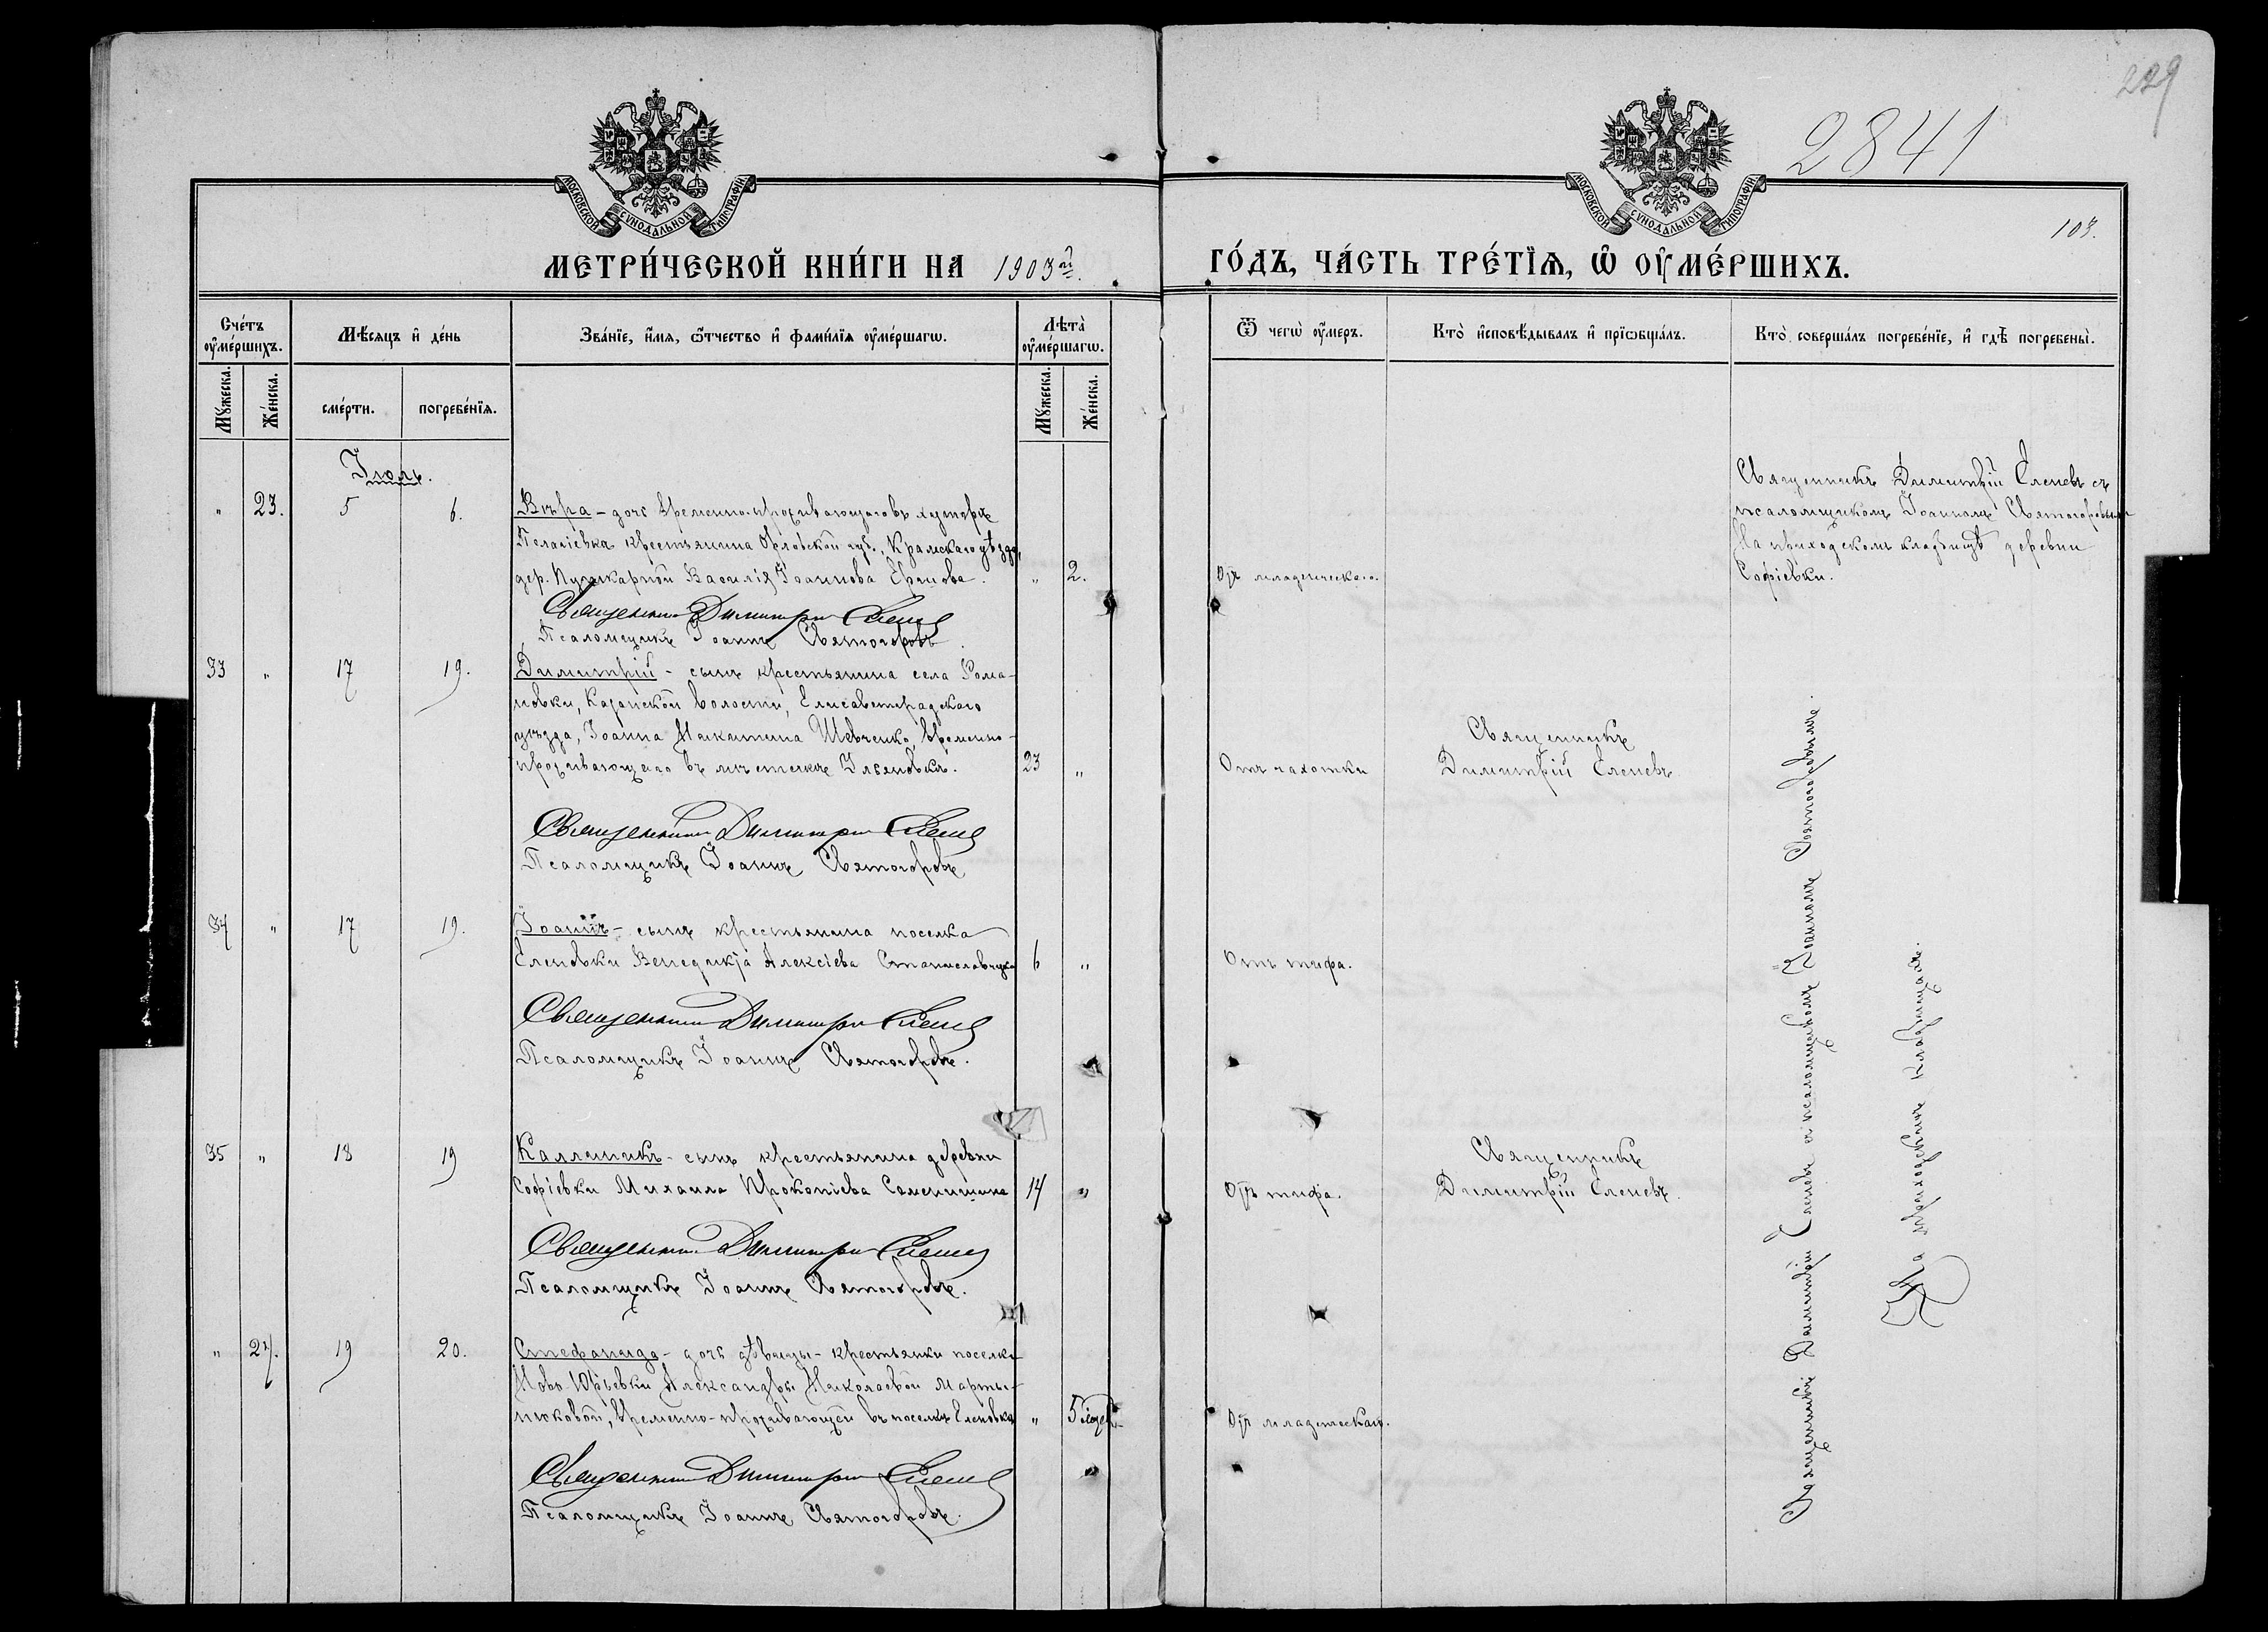 229
2841
103.
МОСКОВСКОЙ СѴНОДАЛЬНОЙ ТИПОГРАФІИ
МОСКОВСКОЙ СѴНОДАЛЬНОЙ ТИПОГРАФІИ
МЕТРИ́ЧЕСКОЙ КНИ́ГИ НА 1903й. ГО́ДЪ, ЧА́СТЬ ТРЕ́ТЇѦ, Ѡ ОУ҆МЕ́РШИХЪ.
Сче́тъ оу҆ме́ршихъ.
Мѣ́сяцъ и҆ де́нь
Зва́нїе, и҆́мя, ѻ҆́тчество и҆ фами́лїя оу҆ме́ршагѡ.
Лѣ́та оу҆ме́ршагѡ.
Ѿ чегѡ̀ оу҆́меръ.
Кто̀ и҆сповѣ́дывалъ и҆ прїѡбща́лъ.
Кто̀ соверша́лъ погребе́нїе, и҆ гдѣ̀ погребены̀.
Мꙋ́жеска. Же́нска. сме́рти. погребе́нїя. Мꙋ́жеска. Же́нска.
Іюль.
" 23. 5 6.
Вѣра - дочь временно-проживающаго въ хуторѣ
Пелагіевка крестьянина Орловской губ., Крамскаго уѣзда,
дер. Пушкарной Василія Іоаннова Ершова. " 2. Отъ младенческаго.
Священникъ Димитрій Еленевъ съ
псаломщикомъ Іоанномъ Святогоровымъ
На приходскомъ кладбищѣ деревни
Софіевки.
Священникъ Димитрій Еленевъ
Псаломщикъ Іоаннъ Святогоровъ
33 " 17 19.
Димитрій - сынъ крестьянина села Рома-
новки, Казанской волости, Елисаветградскаго
уѣзда, Іоанна Никитина Шевченко, временно-
проживающаго въ мѣстечкѣ Ульяновкѣ. 23 " Отъ чахотки
Священникъ
Димитрій Еленевъ.
Священникъ Димитрій Еленевъ
Псаломщикъ Іоаннъ Святогоровъ
34 " 17 19.
Іоаннъ - сынъ крестьянина поселка
Еленовки Венедикта Алексіева Станиславчука 6 " Отъ тифа.
Священникъ Димитрій Еленевъ
Псаломщикъ Іоаннъ Святогоровъ.
35 " 18 19
Каллиникъ - сынъ крестьянина деревни
Софіевки Михаила Прокопіева Саменишина 14 " Отъ тифа.
Священникъ
Димитрій Еленевъ.
Священникъ Димитрій Еленевъ
Псаломщикъ Іоаннъ Святогоровъ.
" 24. 19 20.
Стефанида - дочь дѣвицы - крестьянки поселка
Ново-Юрьевки Александры Николаевой Марты-
нюковой, временно-проживающей въ поселкѣ Еленовкѣ " 5 Отъ младенческаго.
Священникъ Димитрій Еленевъ
Псаломщикъ Іоаннъ Святогоровъ.
Священникъ Димитрій Еленевъ съ псаломщикомъ Іоанномъ Святогоровымъ.
На приходскомъ кладбищѣ.